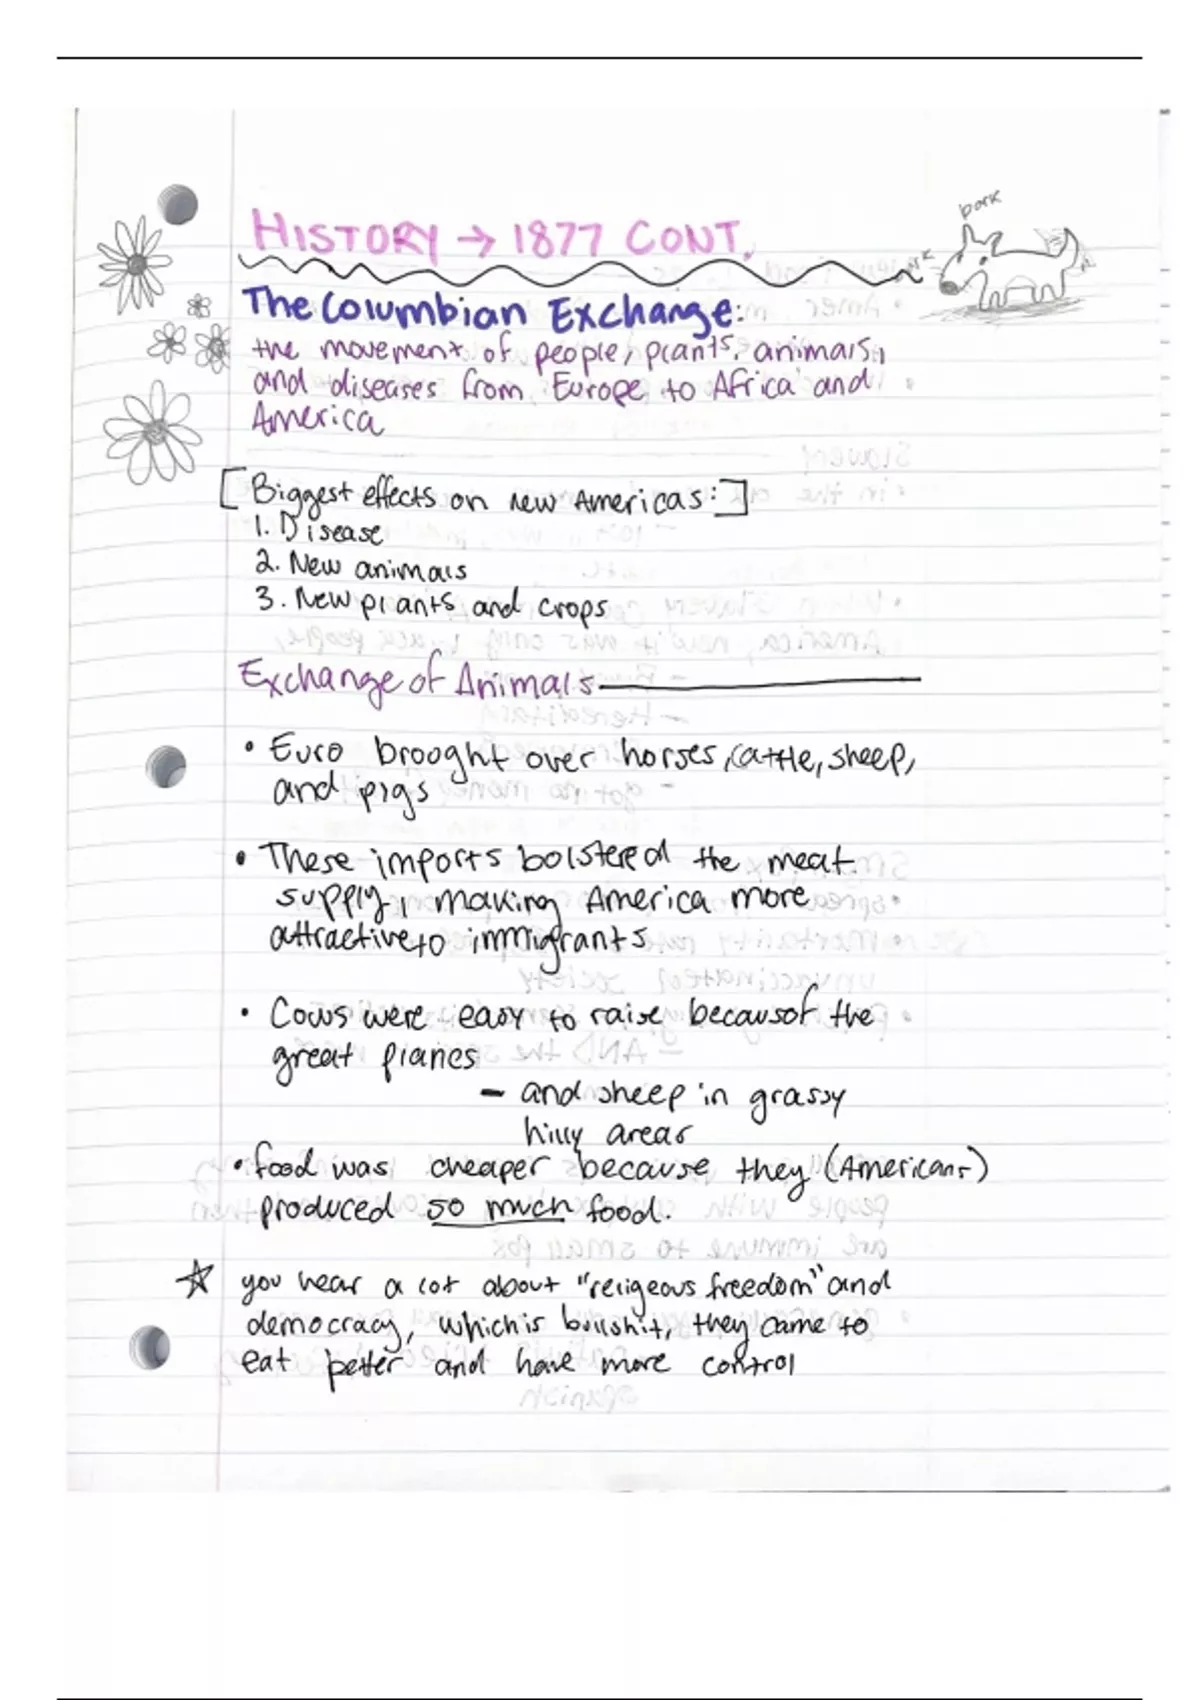 bark
HISTORY → 1877 CONT.
The Columbian Exchange:
the movement of people, plants, animals,
and diseases from Europe to Africa and
America
[Biggest effects on new Americas:]
1. Disease
2. New animals
3. New plants and crops
Exchange of Animals
• Euro brought over horses, cattle, sheep,
and pigs
• These imports bolstered the meat
supply, making America more
attractive to immigrants
• Cows were easy to raise becausof the
great planes
- and sheep in grassy
hilly areas
• food was cheaper because they (Americans)
produced so much food.
☆ you hear a lot about "religeous freedom" and
democracy, which is bullshit, they came to
eat better and have more control